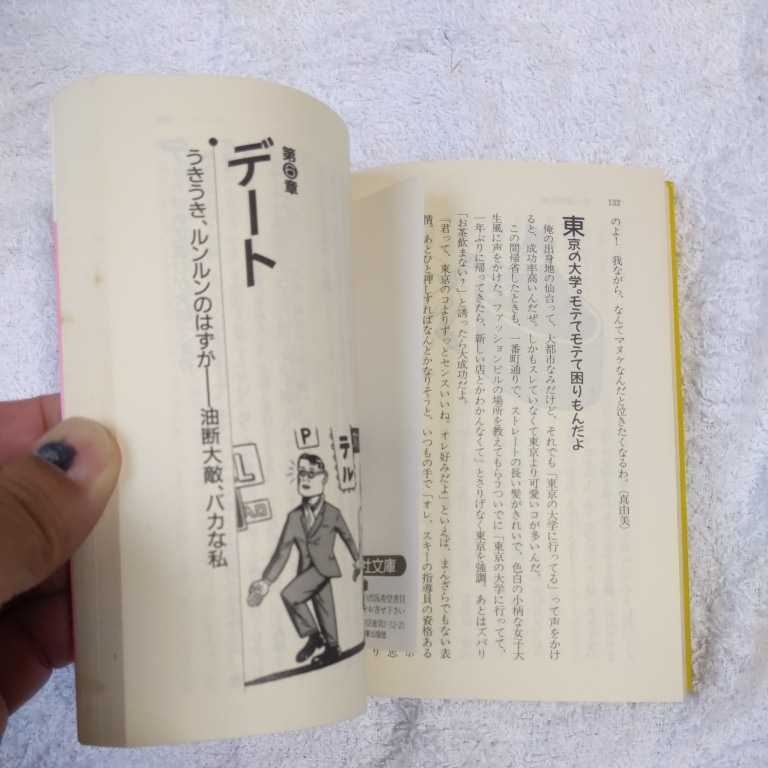 132
のよ！　我ながら、なんてマヌケなんだと泣きたくなるわ。（真由美）
東京の大学。モテてモテて困りもんだよ
俺の出身地の仙台って、大都市なみだけど、それでも「東京の大学に行ってる」って声をかけ
ると、成功率高いんだぜ。しかもスレていなくて東京より可愛いコが多いんだ。
この間帰省したときも、一番町通りで、ストレートの長い髪がきれいで、色白の小柄な女子大
生風に声をかけた。ファッションビルの場所を教えてもらうついでに「東京の大学に行ってて、
一年ぶりに帰ってきたら、新しい店とかわかんなくて」とさりげなく東京を強調。あとはズバリ
「お茶飲まない？」と誘ったら大成功だよ。
「君って、東京のコよりずっとセンスいいね。オレ好みだよ」といえば、まんざらでもない表
情。あとひと押しすればなんとかなりそうと、いつもの手で「オレ、スキーの指導員の資格ある
社文庫
第⑥章
デート
うきうき、ルンルンのはずが——油断大敵、バカな私
P
テル
L